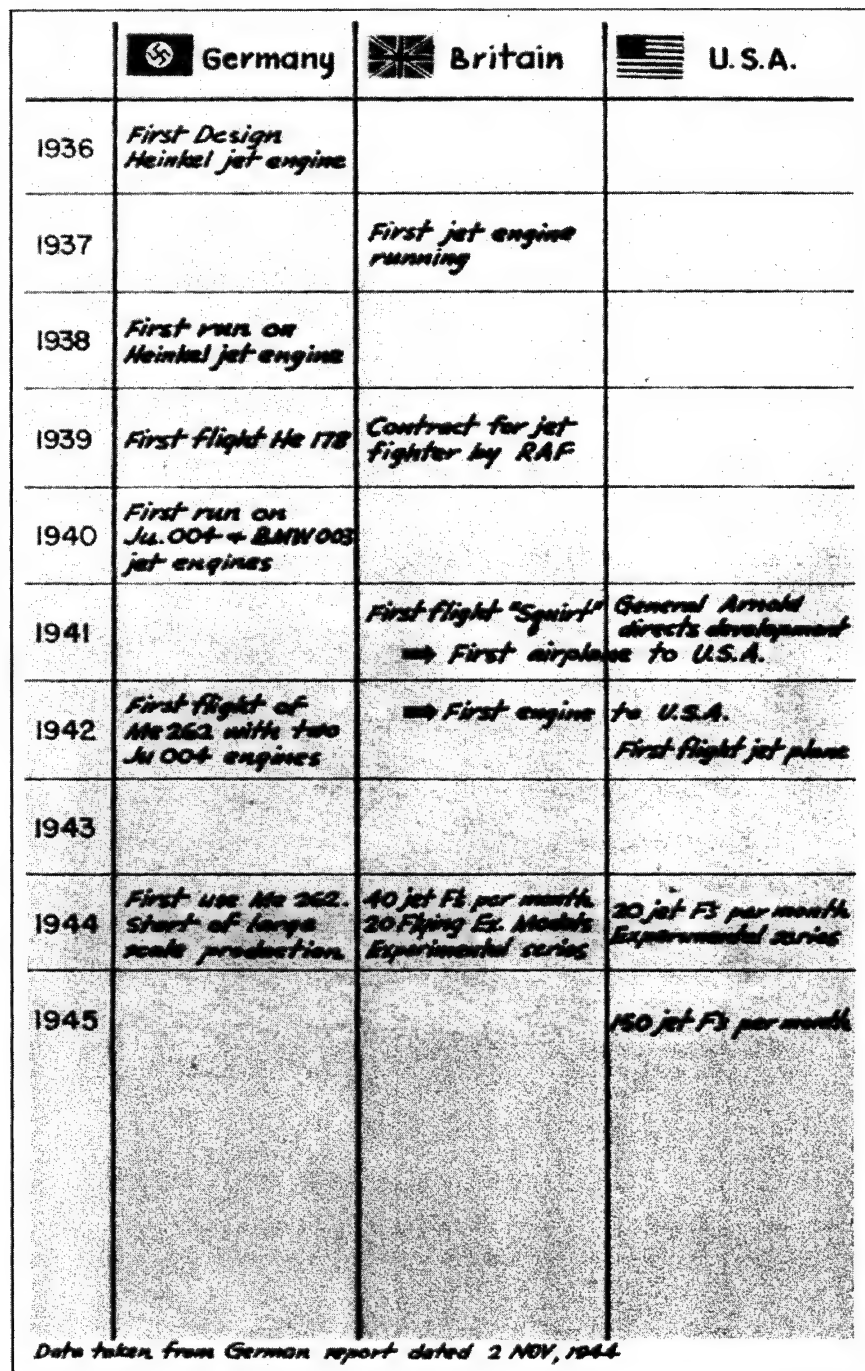 Germany Britain U.S.A.
1936
First Design
Heinkel jet engine
1937
First jet engine
running
1938
First run on
Heinkel jet engine
1939
First flight He 178
Contract for jet
fighter by RAF
1940
First run on
Ju.004 + BMW 003
jet engines
1941
First flight "Squirt"
General Arnold
directs development
➡ First airplane to U.S.A.
1942
First flight of
Me 262 with two
Ju 004 engines
➡ First engine to U.S.A.
First flight jet plane
1943
1944
First use Me 262.
Start of large
scale production.
40 jet F's per month
20 Flying Ex. Models
Experimental series
20 jet F's per month
Experimental series
1945
150 jet F's per month
Data taken from German report dated 2 NOV, 1944